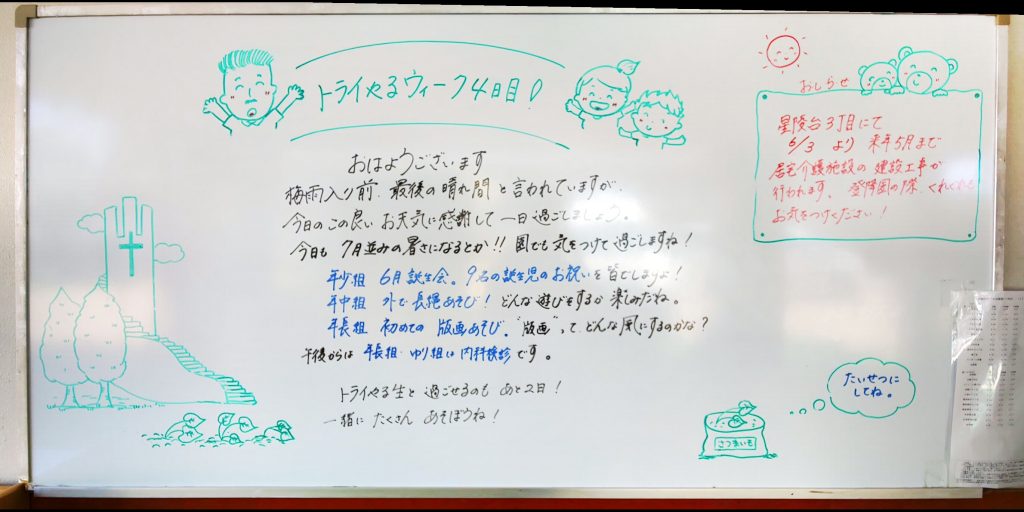 トライやるウィーク4日目!
おはようございます
梅雨入り前、最後の晴れ間と言われていますが、
今日のこの良いお天気に感謝して一日過ごしましょう。
今日も7月並みの暑さになるとか!!園でも気をつけて過ごしますね!
年少組 6月誕生会。9名の誕生児のお祝いを皆でしますよ!
年中組 外で長縄あそび!どんな遊びをするか楽しみだね。
年長組 初めての版画あそび。"版画"って、どんな風にするのかな?
午後からは年長組・ゆり組は内科検診です。
トライやる生と過ごせるのもあと2日!
一緒にたくさんあそぼうね!
おしらせ
星陵台3丁目にて
6/3より来年5月まで
居宅介護施設の建設工事が
行われます。登降園の際、くれぐれも
お気をつけください!
たいせつに
してね。
さつまいも